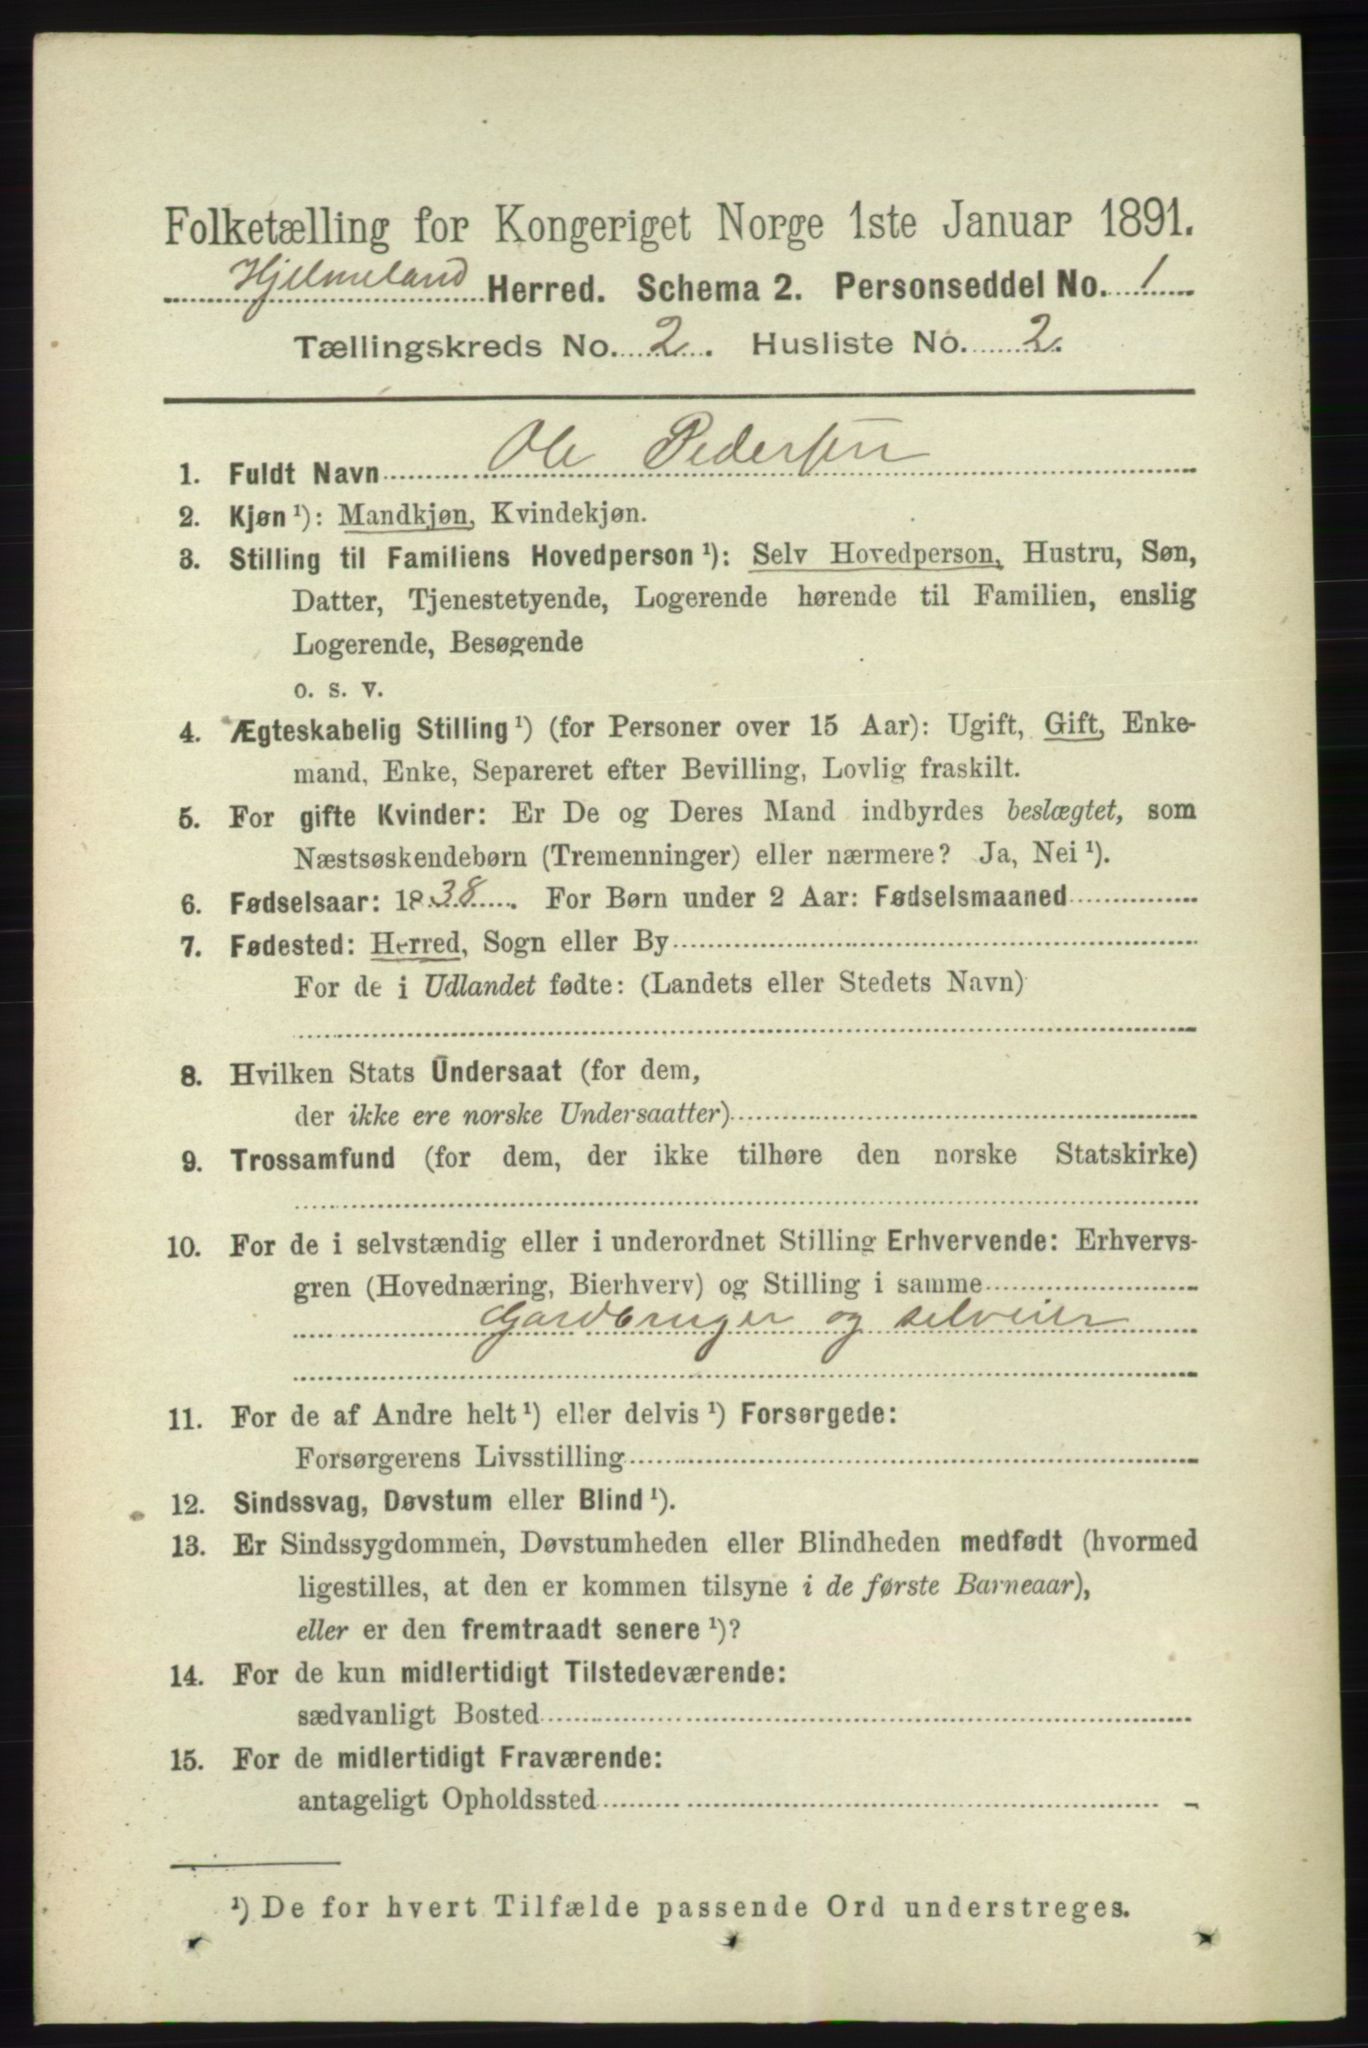 Folketælling for Kongeriget Norge 1ste Januar 1891.
Hjelmeland Herred. Schema 2. Personseddel No. 1
Tællingskreds No. 2. Husliste No. 2.
1. Fuldt Navn Ole Pedersen
2. Kjøn ¹): Mandkjøn, Kvindekjøn.
3. Stilling til Familiens Hovedperson ¹): Selv Hovedperson, Hustru, Søn,
Datter, Tjenestetyende, Logerende hørende til Familien, enslig
Logerende, Besøgende
o. s. v.
4. Ægteskabelig Stilling ¹) (for Personer over 15 Aar): Ugift, Gift, Enke-
mand, Enke, Separeret efter Bevilling, Lovlig fraskilt.
5. For gifte Kvinder: Er De og Deres Mand indbyrdes beslægtet, som
Næstsøskendebørn (Tremenninger) eller nærmere? Ja, Nei ¹).
6. Fødselsaar: 1838. For Børn under 2 Aar: Fødselsmaaned
7. Fødested: Herred, Sogn eller By
For de i Udlandet fødte: (Landets eller Stedets Navn)
8. Hvilken Stats Undersaat (for dem,
der ikke ere norske Undersaatter)
9. Trossamfund (for dem, der ikke tilhøre den norske Statskirke)
10. For de i selvstændig eller i underordnet Stilling Erhvervende: Erhvervs-
gren (Hovednæring, Bierhverv) og Stilling i samme
Gardbruger og selveier
11. For de af Andre helt ¹) eller delvis ¹) Forsørgede:
Forsørgerens Livsstilling
12. Sindssvag, Døvstum eller Blind ¹).
13. Er Sindssygdommen, Døvstumheden eller Blindheden medfødt (hvormed
ligestilles, at den er kommen tilsyne i de første Barneaar),
eller er den fremtraadt senere ¹)?
14. For de kun midlertidigt Tilstedeværende:
sædvanligt Bosted
15. For de midlertidigt Fraværende:
antageligt Opholdssted
¹) De for hvert Tilfælde passende Ord understreges.